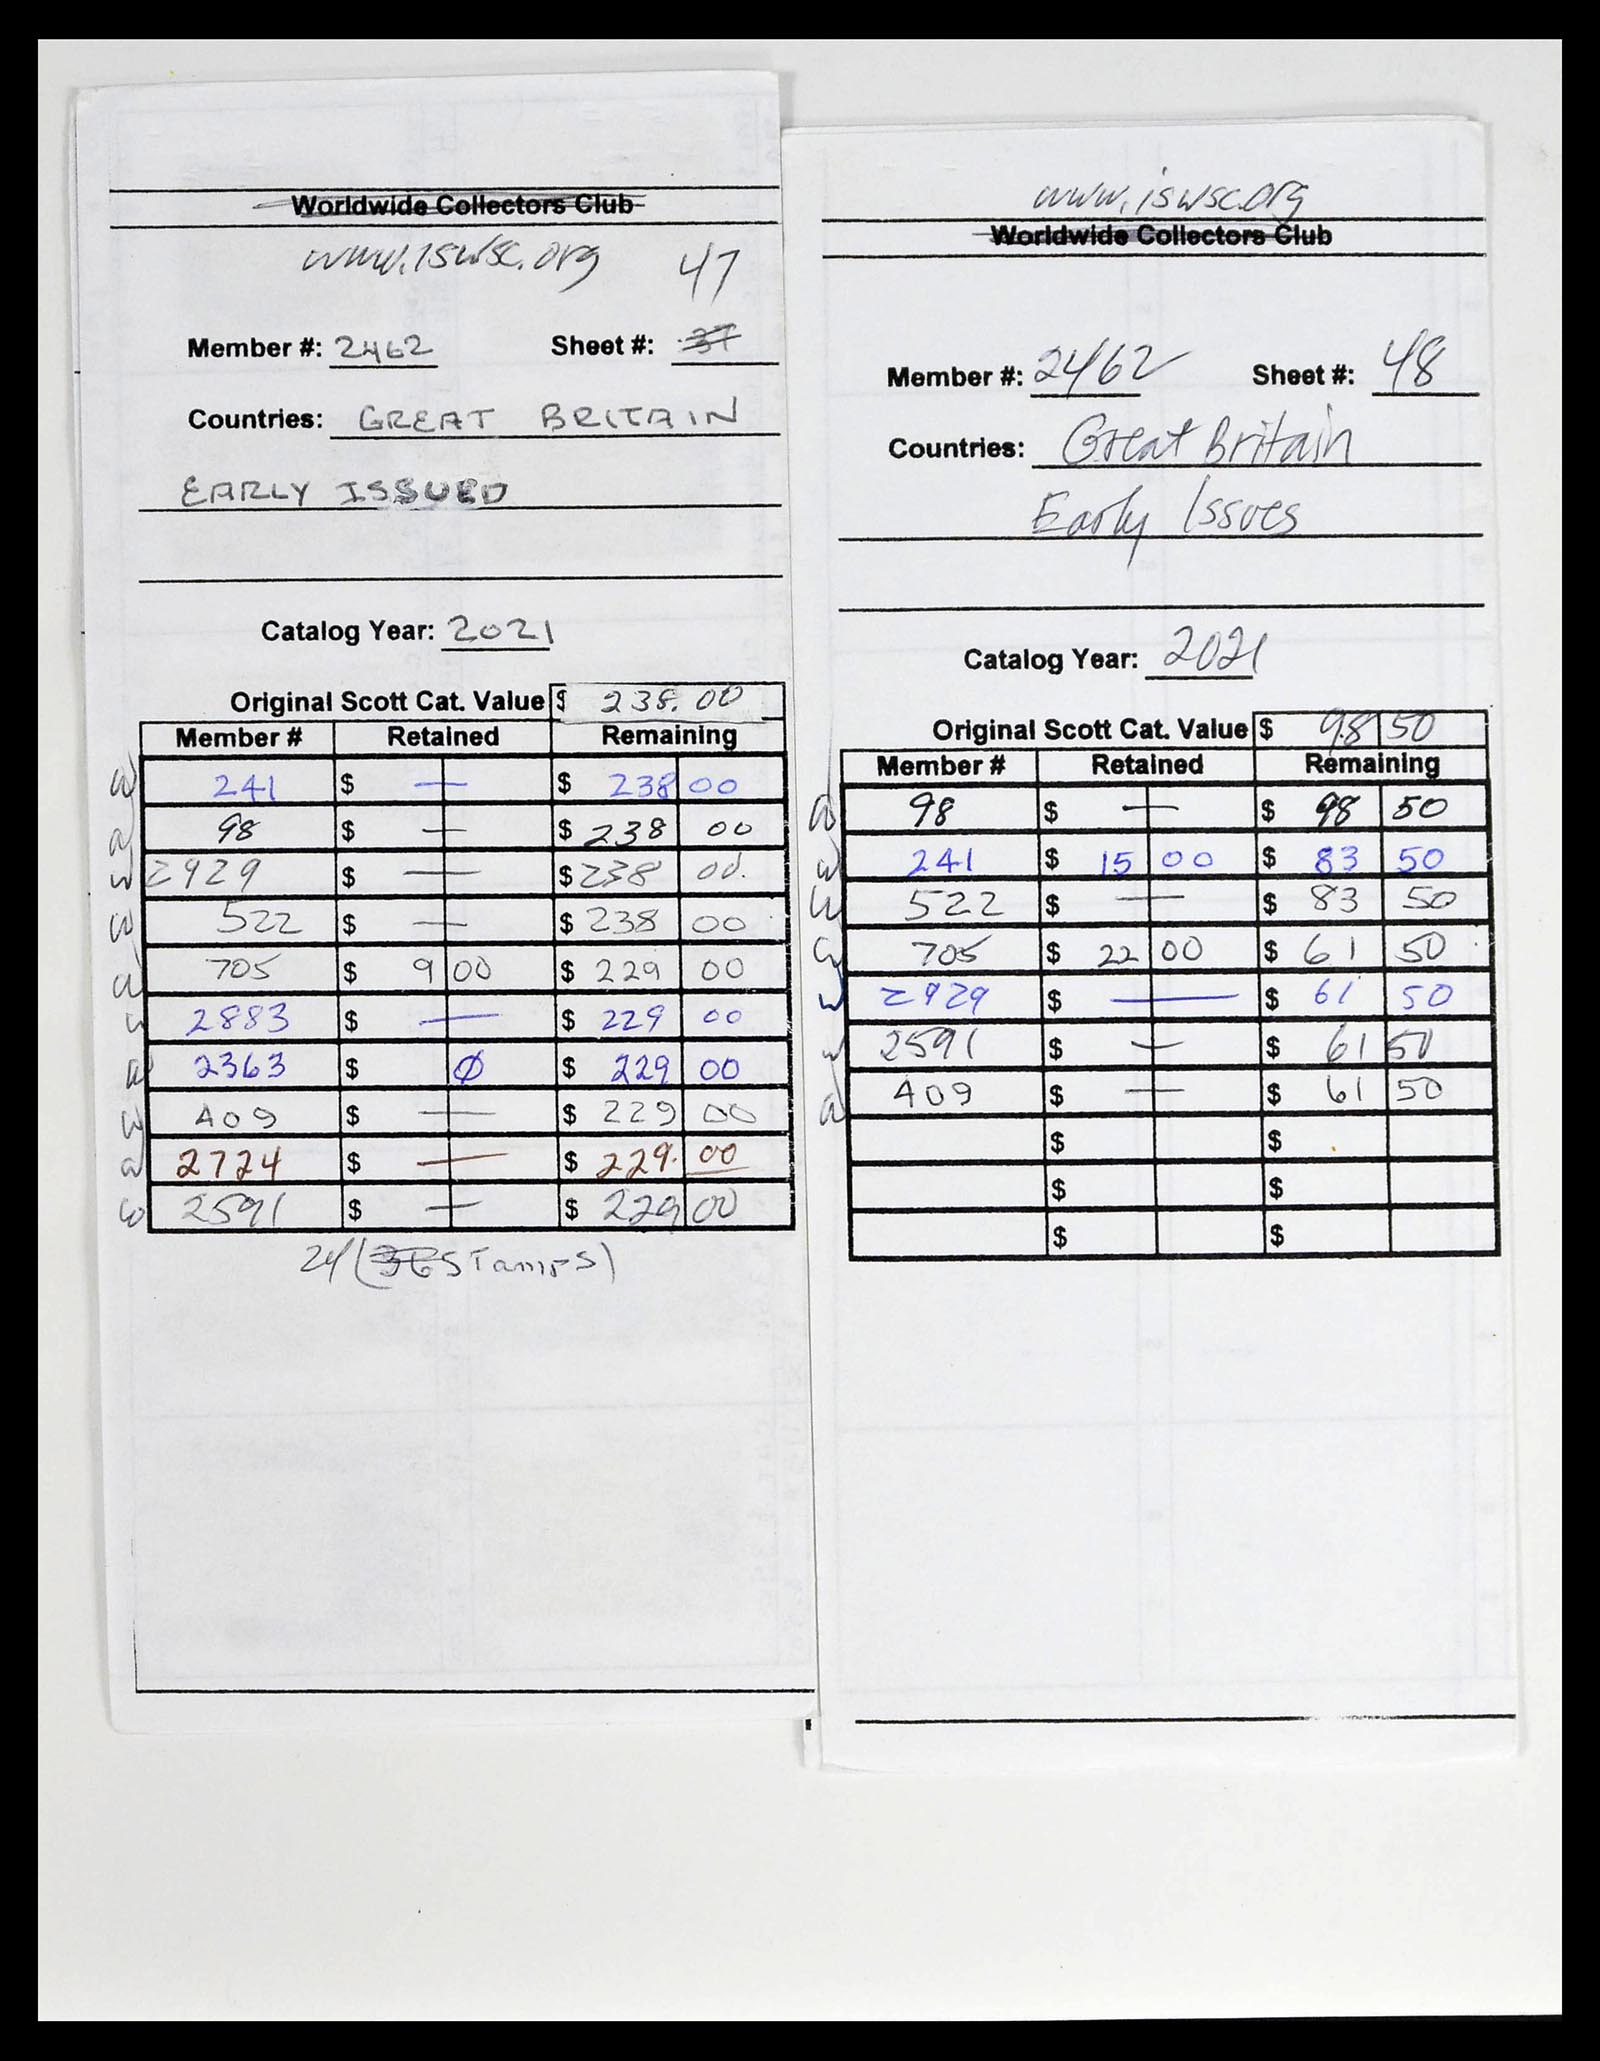 Worldwide Collectors Club
www.iswsc.org 47
Member #: 2462 Sheet #: 37
Countries: GREAT BRITAIN
EARLY ISSUED
Catalog Year: 2021
Original Scott Cat. Value $ 238.00
Member # Retained Remaining
241 $ — $ 238 00
98 $ — $ 238 00
2929 $ — $ 238 00.
522 $ — $ 238 00
705 $ 9 00 $ 229 00
2883 $ — $ 229 00
2363 $ Ø $ 229 00
409 $ — $ 229 00
2724 $ — $ 229. 00
2591 $ — $ 229 00
24 (36 STamps)
www.iswsc.org
Worldwide Collectors Club
Member #: 2462 Sheet #: 48
Countries: Great Britain
Early Issues
Catalog Year: 2021
Original Scott Cat. Value $ 98 50
Member # Retained Remaining
98 $ — $ 98 50
241 $ 15 00 $ 83 50
522 $ — $ 83 50
705 $ 22 00 $ 61 50
2929 $ — $ 61 50
2591 $ — $ 61 50
409 $ — $ 61 50
$ $
$ $
$ $